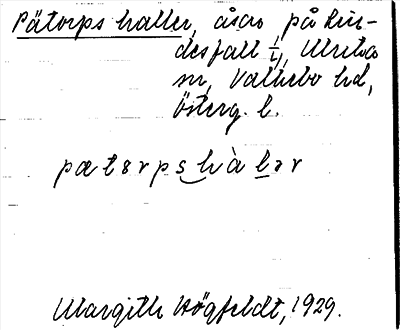 Pätorps haller, åsar på Lin-
desfall 1/1, Ulrika
sn, Valkebo hd,
Österg. l.
pætɜrpshàlər
Margith Högfeldt, 1929.